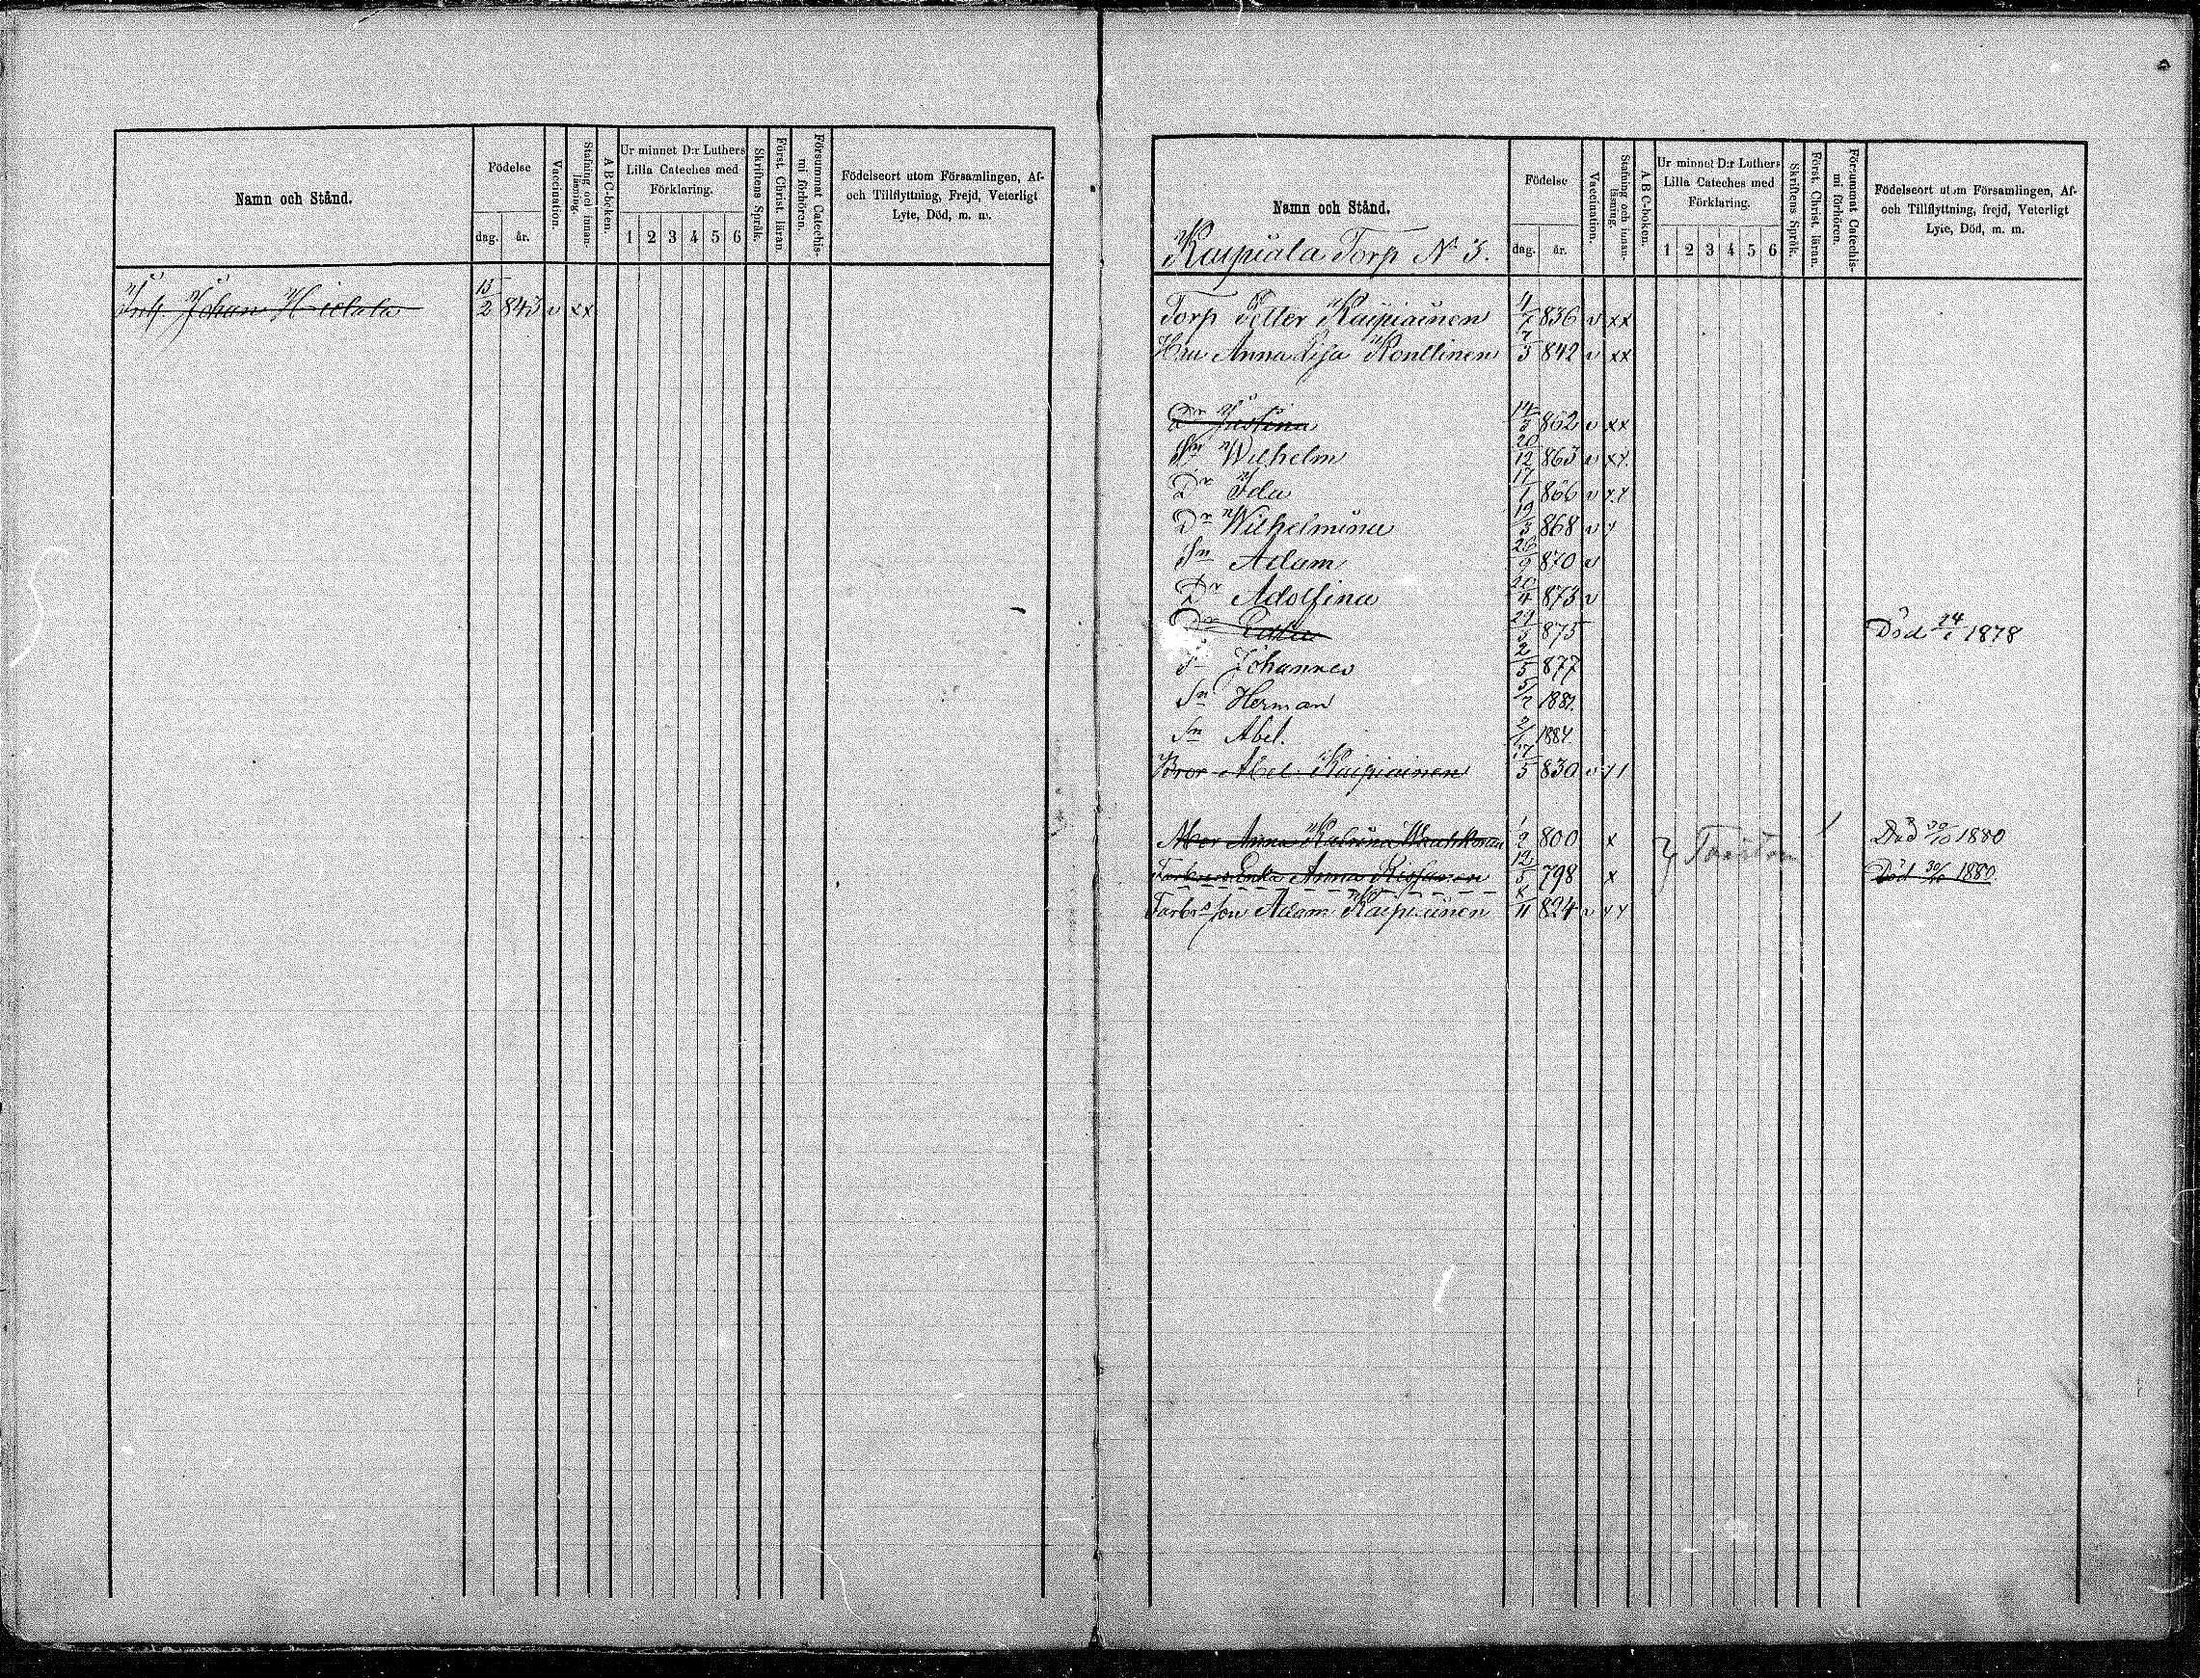 Namn och Stånd.
Födelse
dag.
år.
Vaccination.
Stafning och innan-läsning.
A B C-boken.
Ur minnet D:r Luthers
Lilla Cateches med
Förklaring.
1 2 3 4 5 6
Skriftens Språk.
Först. Christ. läran.
Försummat Catechis-mi förhören.
Födelseort utom Församlingen, Af-
och Tillflyttning, Frejd, Veterligt
Lyte, Död, m. m.
Johan Hietala 13/2 843 v xx
Namn och Stånd.
Kaipiala Torp No 3.
Födelse
dag.
år.
Vaccination.
Stafning och innan-läsning.
A B C-boken.
Ur minnet D:r Luthers
Lilla Cateches med
Förklaring.
1 2 3 4 5 6
Skriftens Språk.
Först. Christ. läran.
Försummat Catechis-mi förhören.
Födelseort utom Församlingen, Af-
och Tillflyttning, frejd, Veterligt
Lyte, Död, m. m.
Torp Petter Kaipiainen 4/7 836 v xx
Hru Anna Lisa Konttinen 7/3 842 v xx
Dr Justina 14/3 862 v xx
Sn Wilhelm 20/12 863 v xx
Dr Ida 17/1 866 v xx
Dr Wilhelmina 19/3 868 v x
Sn Adam 26/9 870 v
Dr Adolfina 20/4 873 v
Dr Edla 29/3 875 Död 24/1 1878
Sn Johannes 2/5 877
Sn Herman 5/7 1881.
Sn Abel. 1884.
Bror Abel Kaipiainen 17/5 830 v
Mor Anna Katrina 1/2 800 x Död 30/10 1880
Anna 12/5 798 x Död 30/10 1880.
Farbr. son Adam Kaipiainen 11 824 v xx